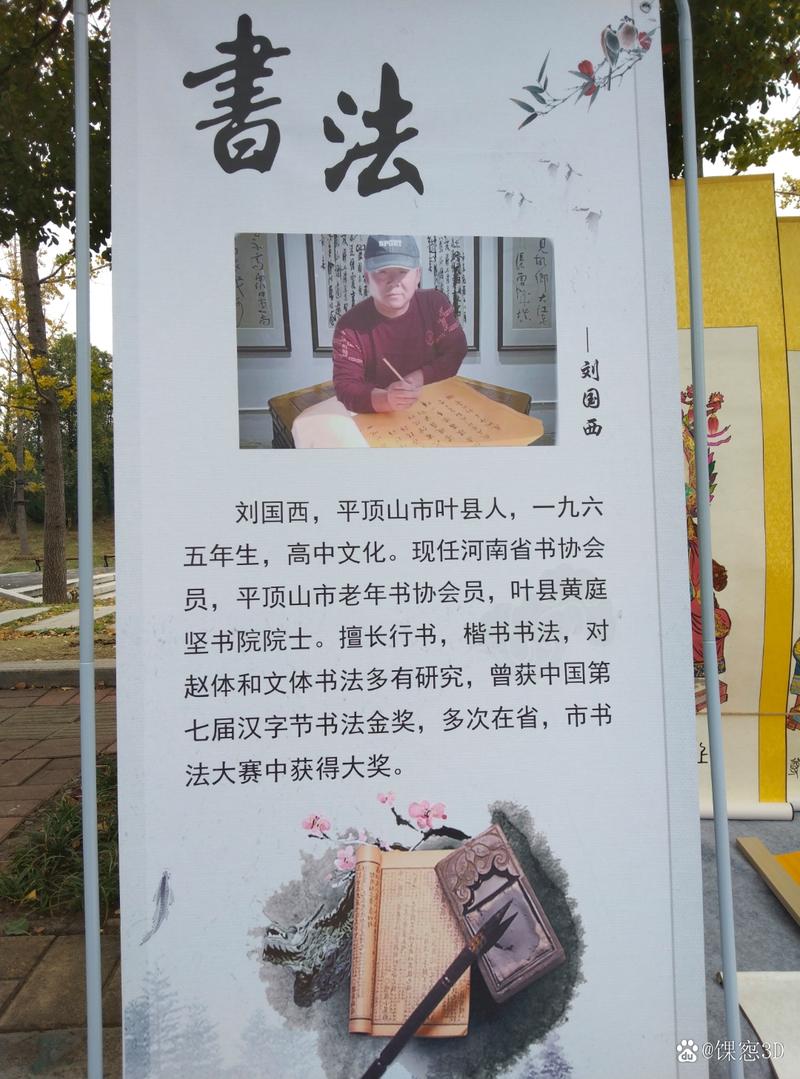 書法
SPORT
——刘国西
刘国西，平顶山市叶县人，一九六
五年生，高中文化。现任河南省书协会
员，平顶山市老年书协会员，叶县黄庭
坚书院院士。擅长行书，楷书书法，对
赵体和文体书法多有研究，曾获中国第
七届汉字节书法金奖，多次在省，市书
法大赛中获得大奖。
@馃窓3D